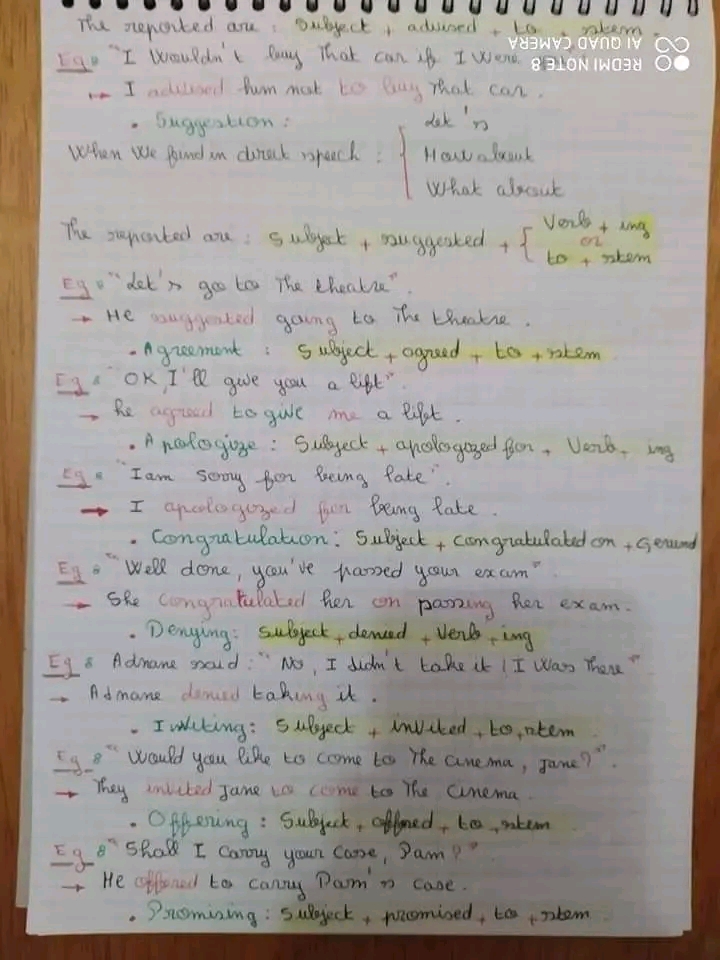 The reported are : Subject + advised + to + stem.
REDMI NOTE 8
AI QUAD CAMERA
Eg : "I wouldn't buy That car if I were
→ I advised him not to buy That car.
• Suggestion :
When We find in direct speech : { Let's
How about
What about
The reported are : Subject + suggested + { Verb + ing
or
to + stem
Eg : "Let's go to The theatre".
→ He suggested going to The theatre.
• Agreement : Subject + agreed + to + stem
Eg : "OK, I'll give you a lift".
→ he agreed to give me a lift.
• Apologize : Subject + apologized for + Verb + ing
Eg : "I am sorry for being late".
→ I apologized for being late.
• Congratulation : Subject + congratulated on + Gerund
Eg : "Well done, you've passed your exam"
→ She congratulated her on passing her exam.
• Denying : Subject + denied + Verb + ing
Eg : Adnane said : "No, I didn't take it ! I Was There"
→ Adnane denied taking it.
• Inviting : Subject + invited + to + stem
Eg : "Would you like to come to The cinema, Jane?".
→ They invited Jane to come to The Cinema.
• Offering : Subject + offered + to + stem
Eg : "Shall I carry your Case, Pam?"
→ He offered to carry Pam's case.
• Promising : Subject + promised + to + stem